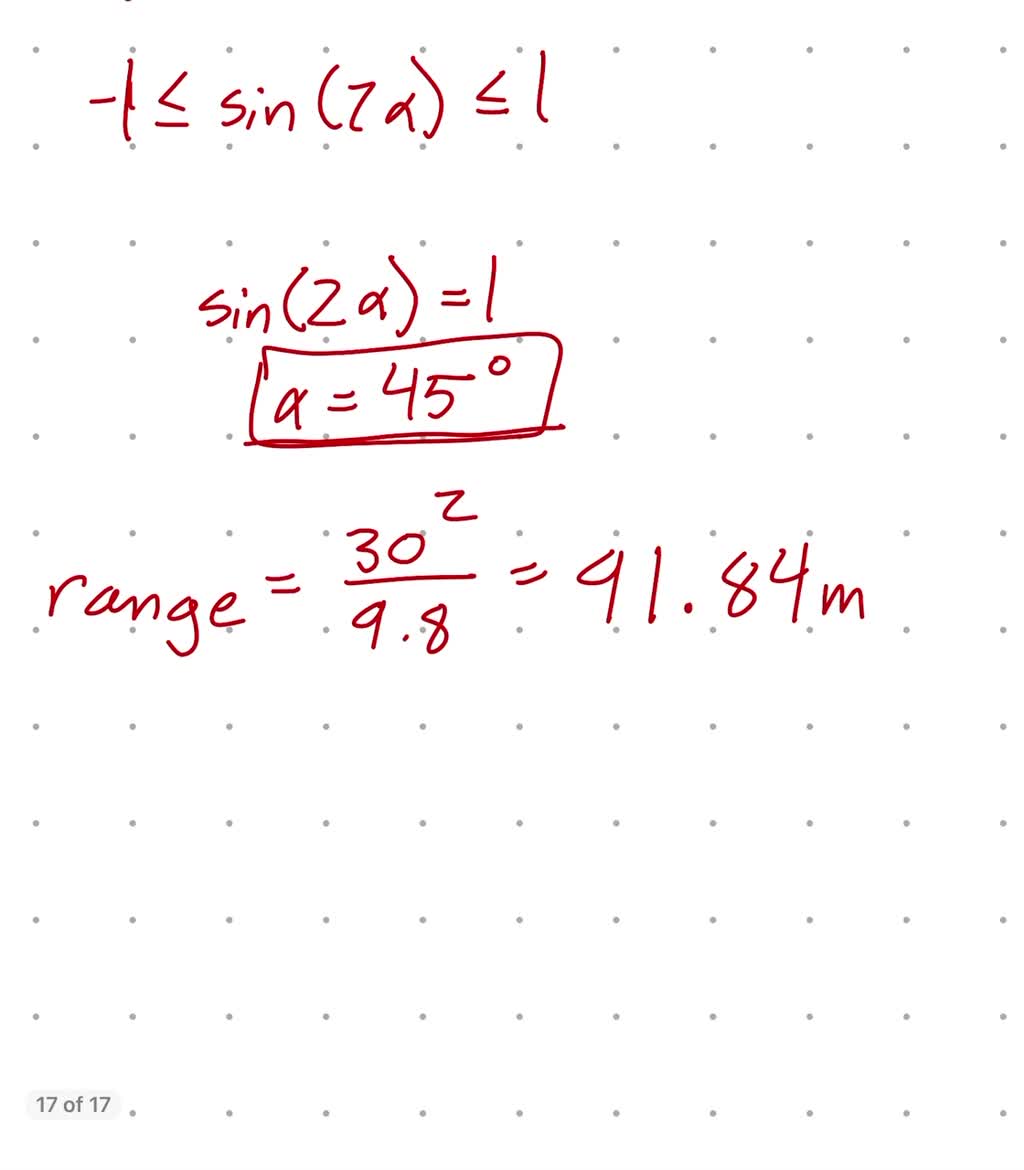 -1 ≤ sin(2α) ≤ 1
sin(2α) = 1
α = 45°
range = 30² / 9.8 = 91.84m
17 of 17